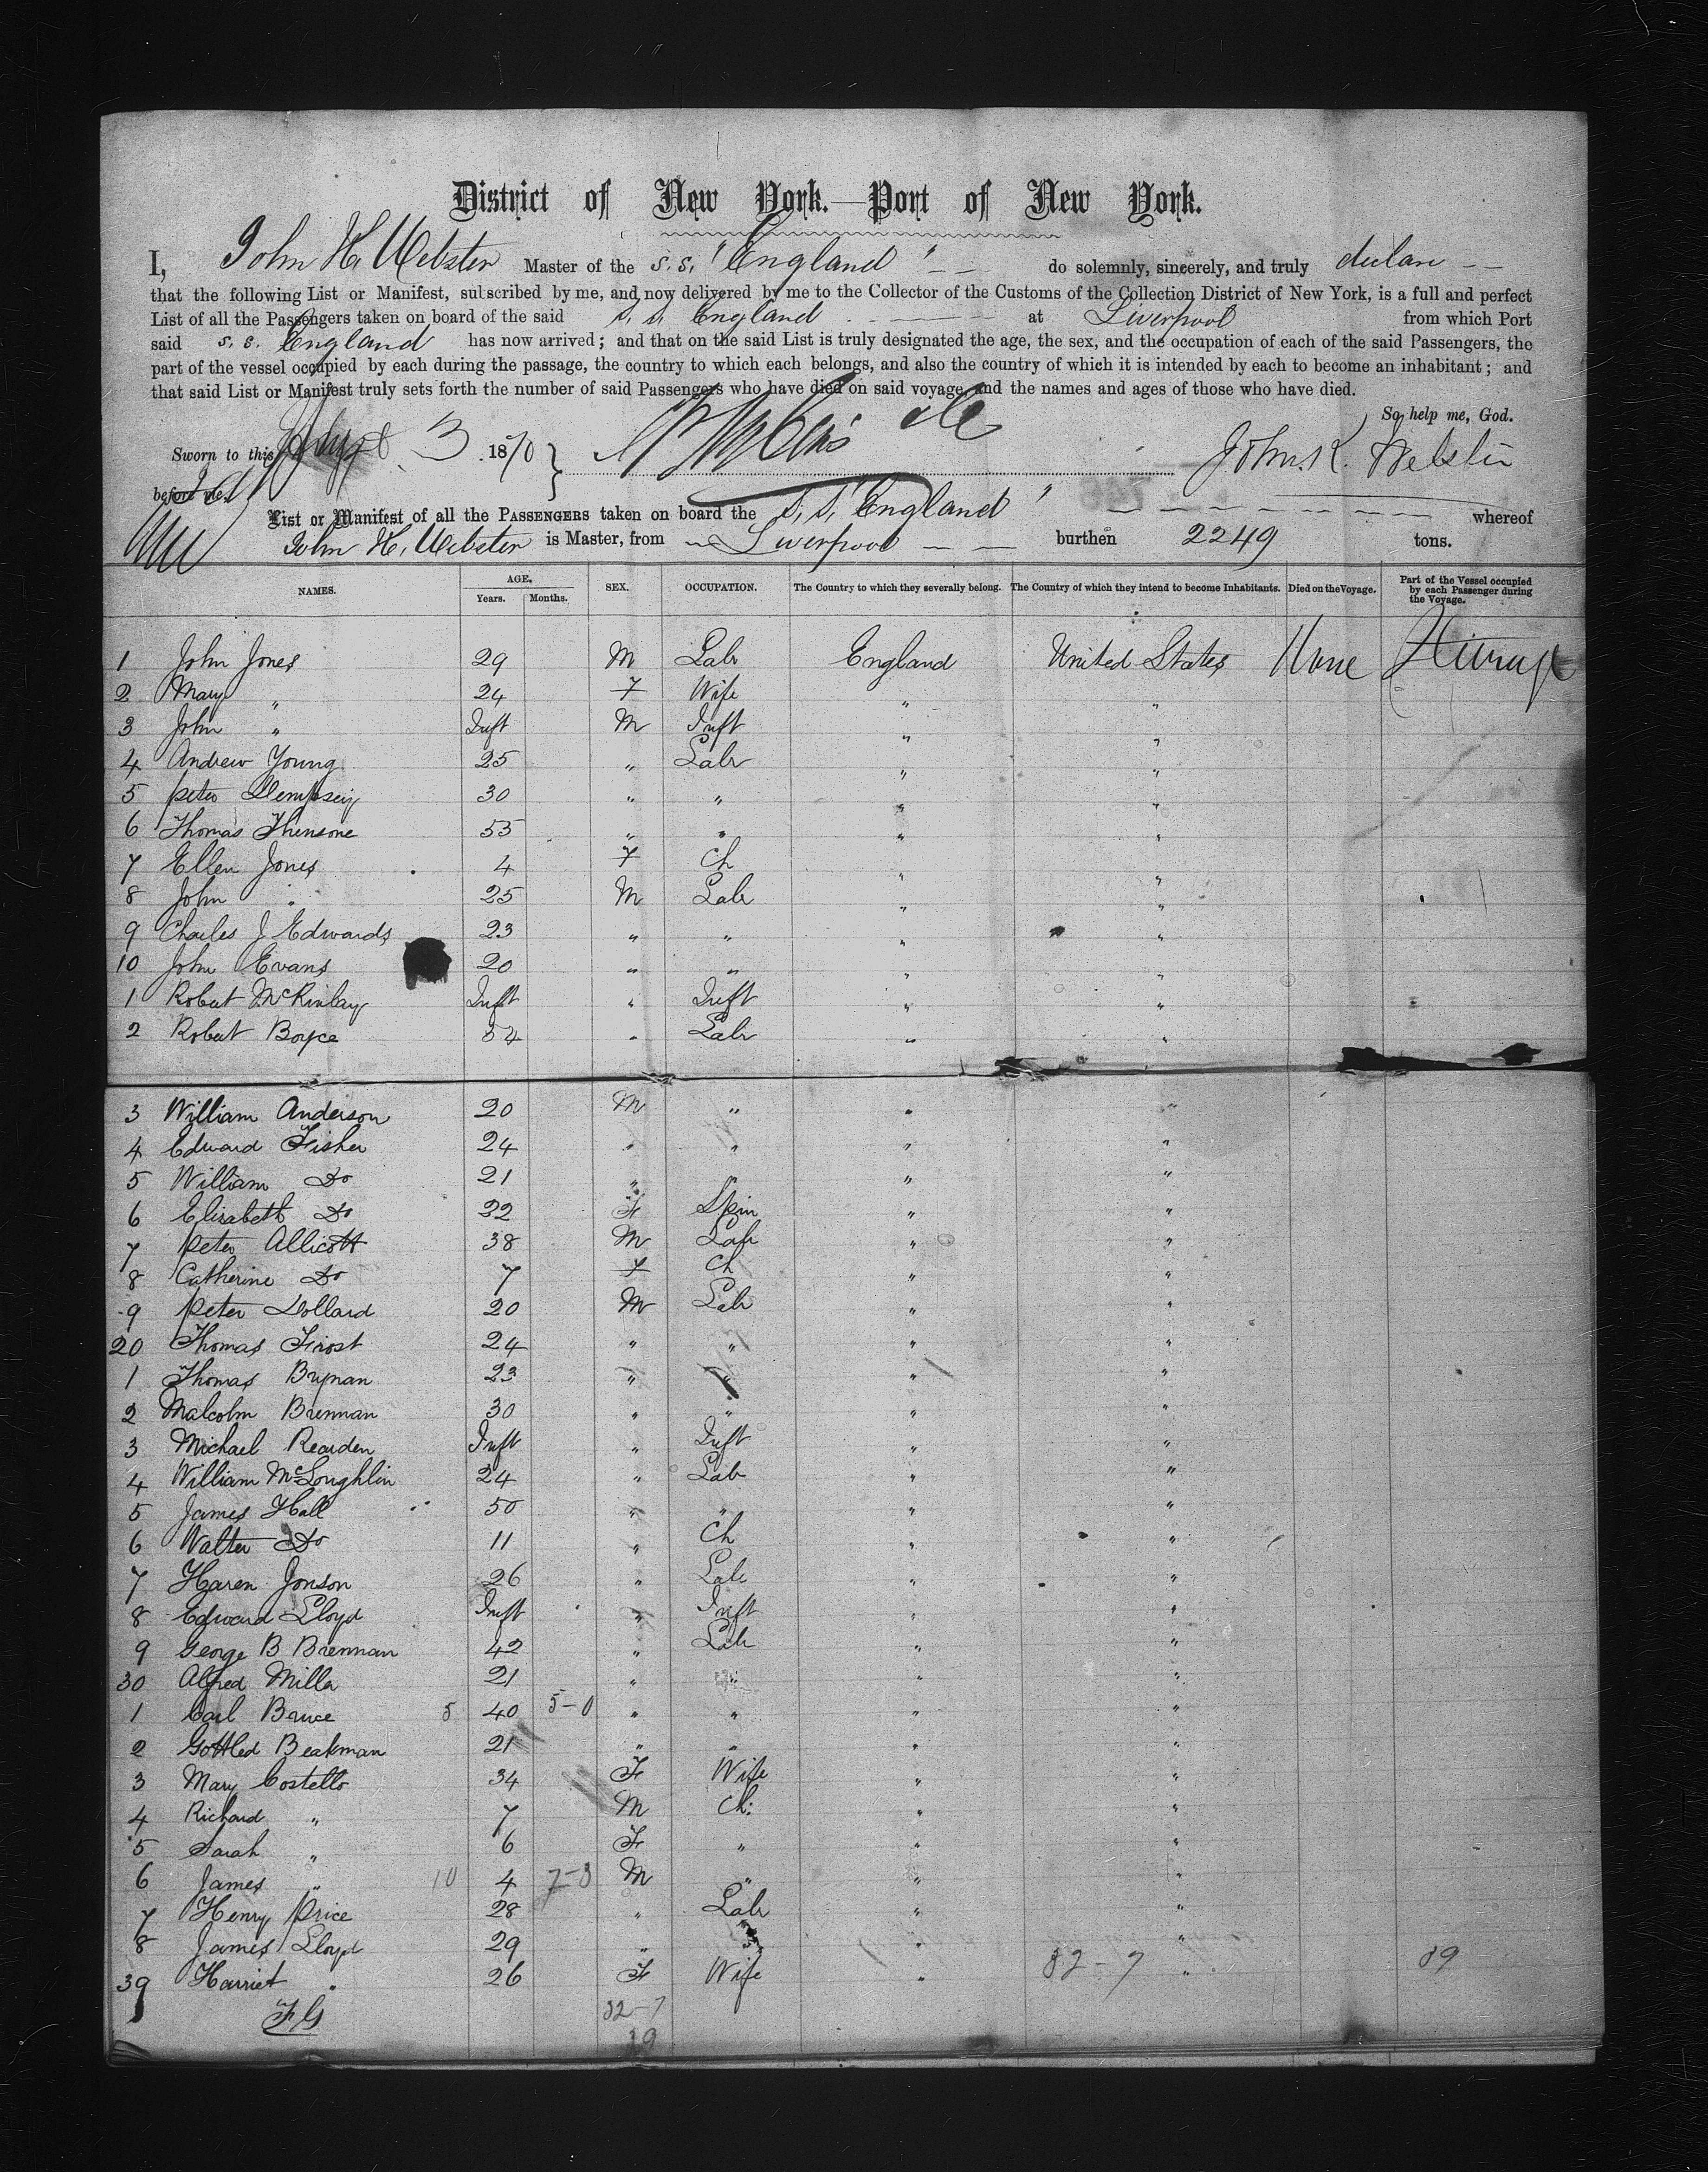 District of New York.—Port of New York.
I, John H. Webster Master of the S.S. "England" do solemnly, sincerely, and truly declare
that the following List or Manifest, subscribed by me, and now delivered by me to the Collector of the Customs of the Collection District of New York, is a full and perfect
List of all the Passengers taken on board of the said S.S. England at Liverpool from which Port
said S.S. England has now arrived; and that on the said List is truly designated the age, the sex, and the occupation of each of the said Passengers, the
part of the vessel occupied by each during the passage, the country to which each belongs, and also the country of which it is intended by each to become an inhabitant; and
that said List or Manifest truly sets forth the number of said Passengers who have died on said voyage, and the names and ages of those who have died.
So help me, God.
Sworn to this 3 1870 John K. Webster
before me.
List or Manifest of all the PASSENGERS taken on board the S.S. "England" whereof
John H. Webster is Master, from Liverpool burthen 2249 tons.
NAMES. AGE. Years. Months. SEX. OCCUPATION. The Country to which they severally belong. The Country of which they intend to become Inhabitants. Died on the Voyage. Part of the Vessel occupied by each Passenger during the Voyage.
1 John Jones 29 M Labr England United States None Steerage
2 Mary " 24 F Wife " "
3 John " Inft M Inft " "
4 Andrew Young 25 " Labr " "
5 Peter Dempsey 30 " " " "
6 Thomas Thensone 55 " " " "
7 Ellen Jones 4 F Ch " "
8 John " 25 M Labr " "
9 Charles J Edwards 23 " " " "
10 John Evans 20 " " " "
1 Robert McKinlay Inft " Inft " "
2 Robert Boyce 54 " Labr " "
3 William Anderson 20 M " " "
4 Edward Fisher 24 " " " "
5 William Do 21 " " " "
6 Elizabeth Do 22 F Spin " "
7 Peter Allicott 38 M Labr " "
8 Catherine Do 7 F Ch " "
9 Peter Dollard 20 M Labr " "
20 Thomas Frost 24 " " " "
1 Thomas Brynan 23 " " " "
2 Malcolm Brennan 30 " " " "
3 Michael Rearden Inft " Inft " "
4 William McLoughlin 24 " Lab " "
5 James Hall 50 " " " "
6 Walter Do 11 " Ch " "
7 Haren Jonson 26 " Lab " "
8 Edward Lloyd Inft " Inft " "
9 George B Brennan 42 " Lab " "
30 Alfred Milla 21 " " " "
1 Carl Bruce 5 40 5-0 " " " "
2 Gottled Beakman 21 " " " "
3 Mary Costello 34 F Wife " "
4 Richard " 7 M Ch: " "
5 Sarah " 6 F " " "
6 James " 10 4 7-3 M " " "
7 Henry Price 28 " Labr " "
8 James Lloyd 29 " " " "
39 Harriet " 26 F Wife " 32-7 " 39
FG 32-7
39